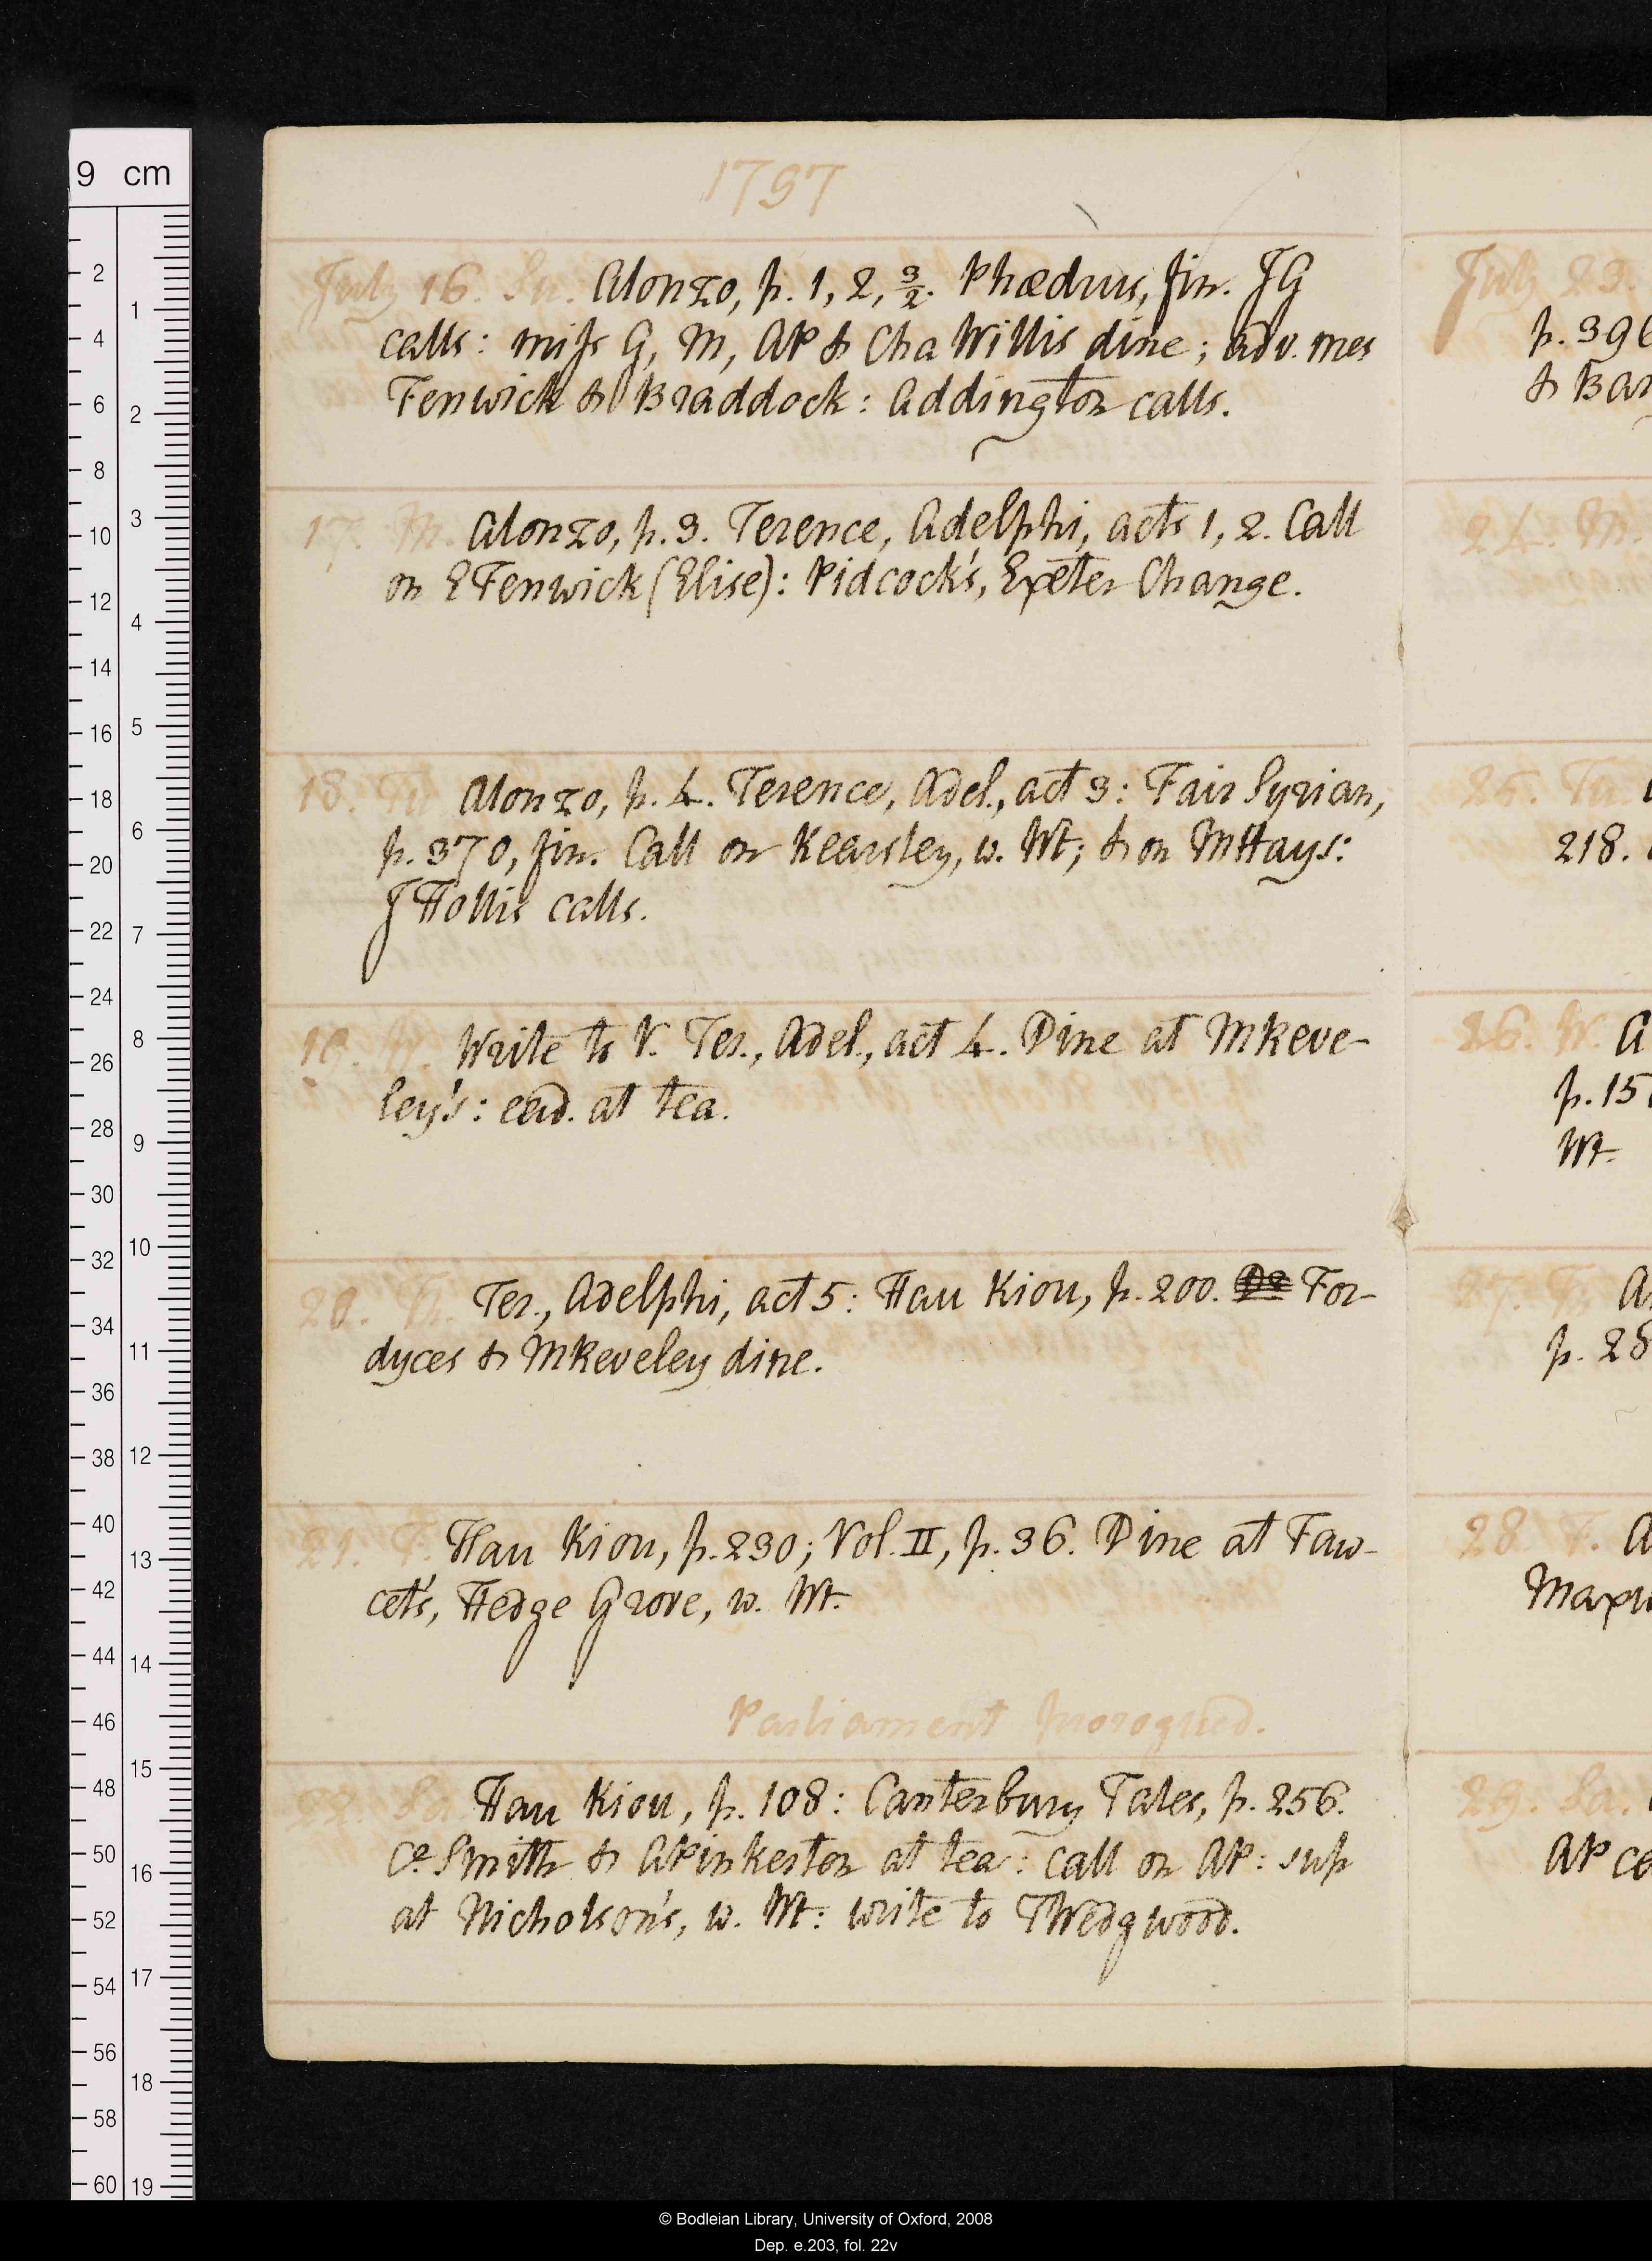 9 cm
1797
July 16. Su. Alonzo, p. 1, 2, 3/2. Phædrus, fin. JG
calls: miss G, M, AP & Cha Willis dine; adv. mes
Fenwick & Braddock: Addington calls.
17. M. Alonzo, p. 3. Terence, Adelphi, acts 1, 2. Call
on E Fenwick (Elise): Pidcock's, Exeter Change.
18. Tu. Alonzo, p. 4. Terence, Adel., act 3: Fair Syrian,
p. 370, fin. Call on Kearsley, w. Wt; & on MHays:
J Hollis calls.
19. W. Write to V. Ter., Adel., act 4. Dine at MReve-
ley's: ead. at tea.
20. Th. Ter., Adelphi, act 5: Hau Kiou, p. 200. For-
dyces & MReveley dine.
21. F. Hau Kiou, p. 230; Vol. II, p. 36. Dine at Faw-
cet's, Hedge Grove, w. Wt.
Parliament prorogued.
22. Sa. Hau Kiou, p. 108: Canterbury Tales, p. 256.
Ce Smith & APinkerton at tea: call on AP: sup
at Nicholson's, w. Wt: write to TWedgwood.
July 23.
p. 396
& Bar
24. M.
25. Tu.
218.
26. W. A
p. 15
Wt.
27. Th. A
p. 28
28. F. A
Maxw
29. Sa.
AP ce
© Bodleian Library, University of Oxford, 2008
Dep. e.203, fol. 22v